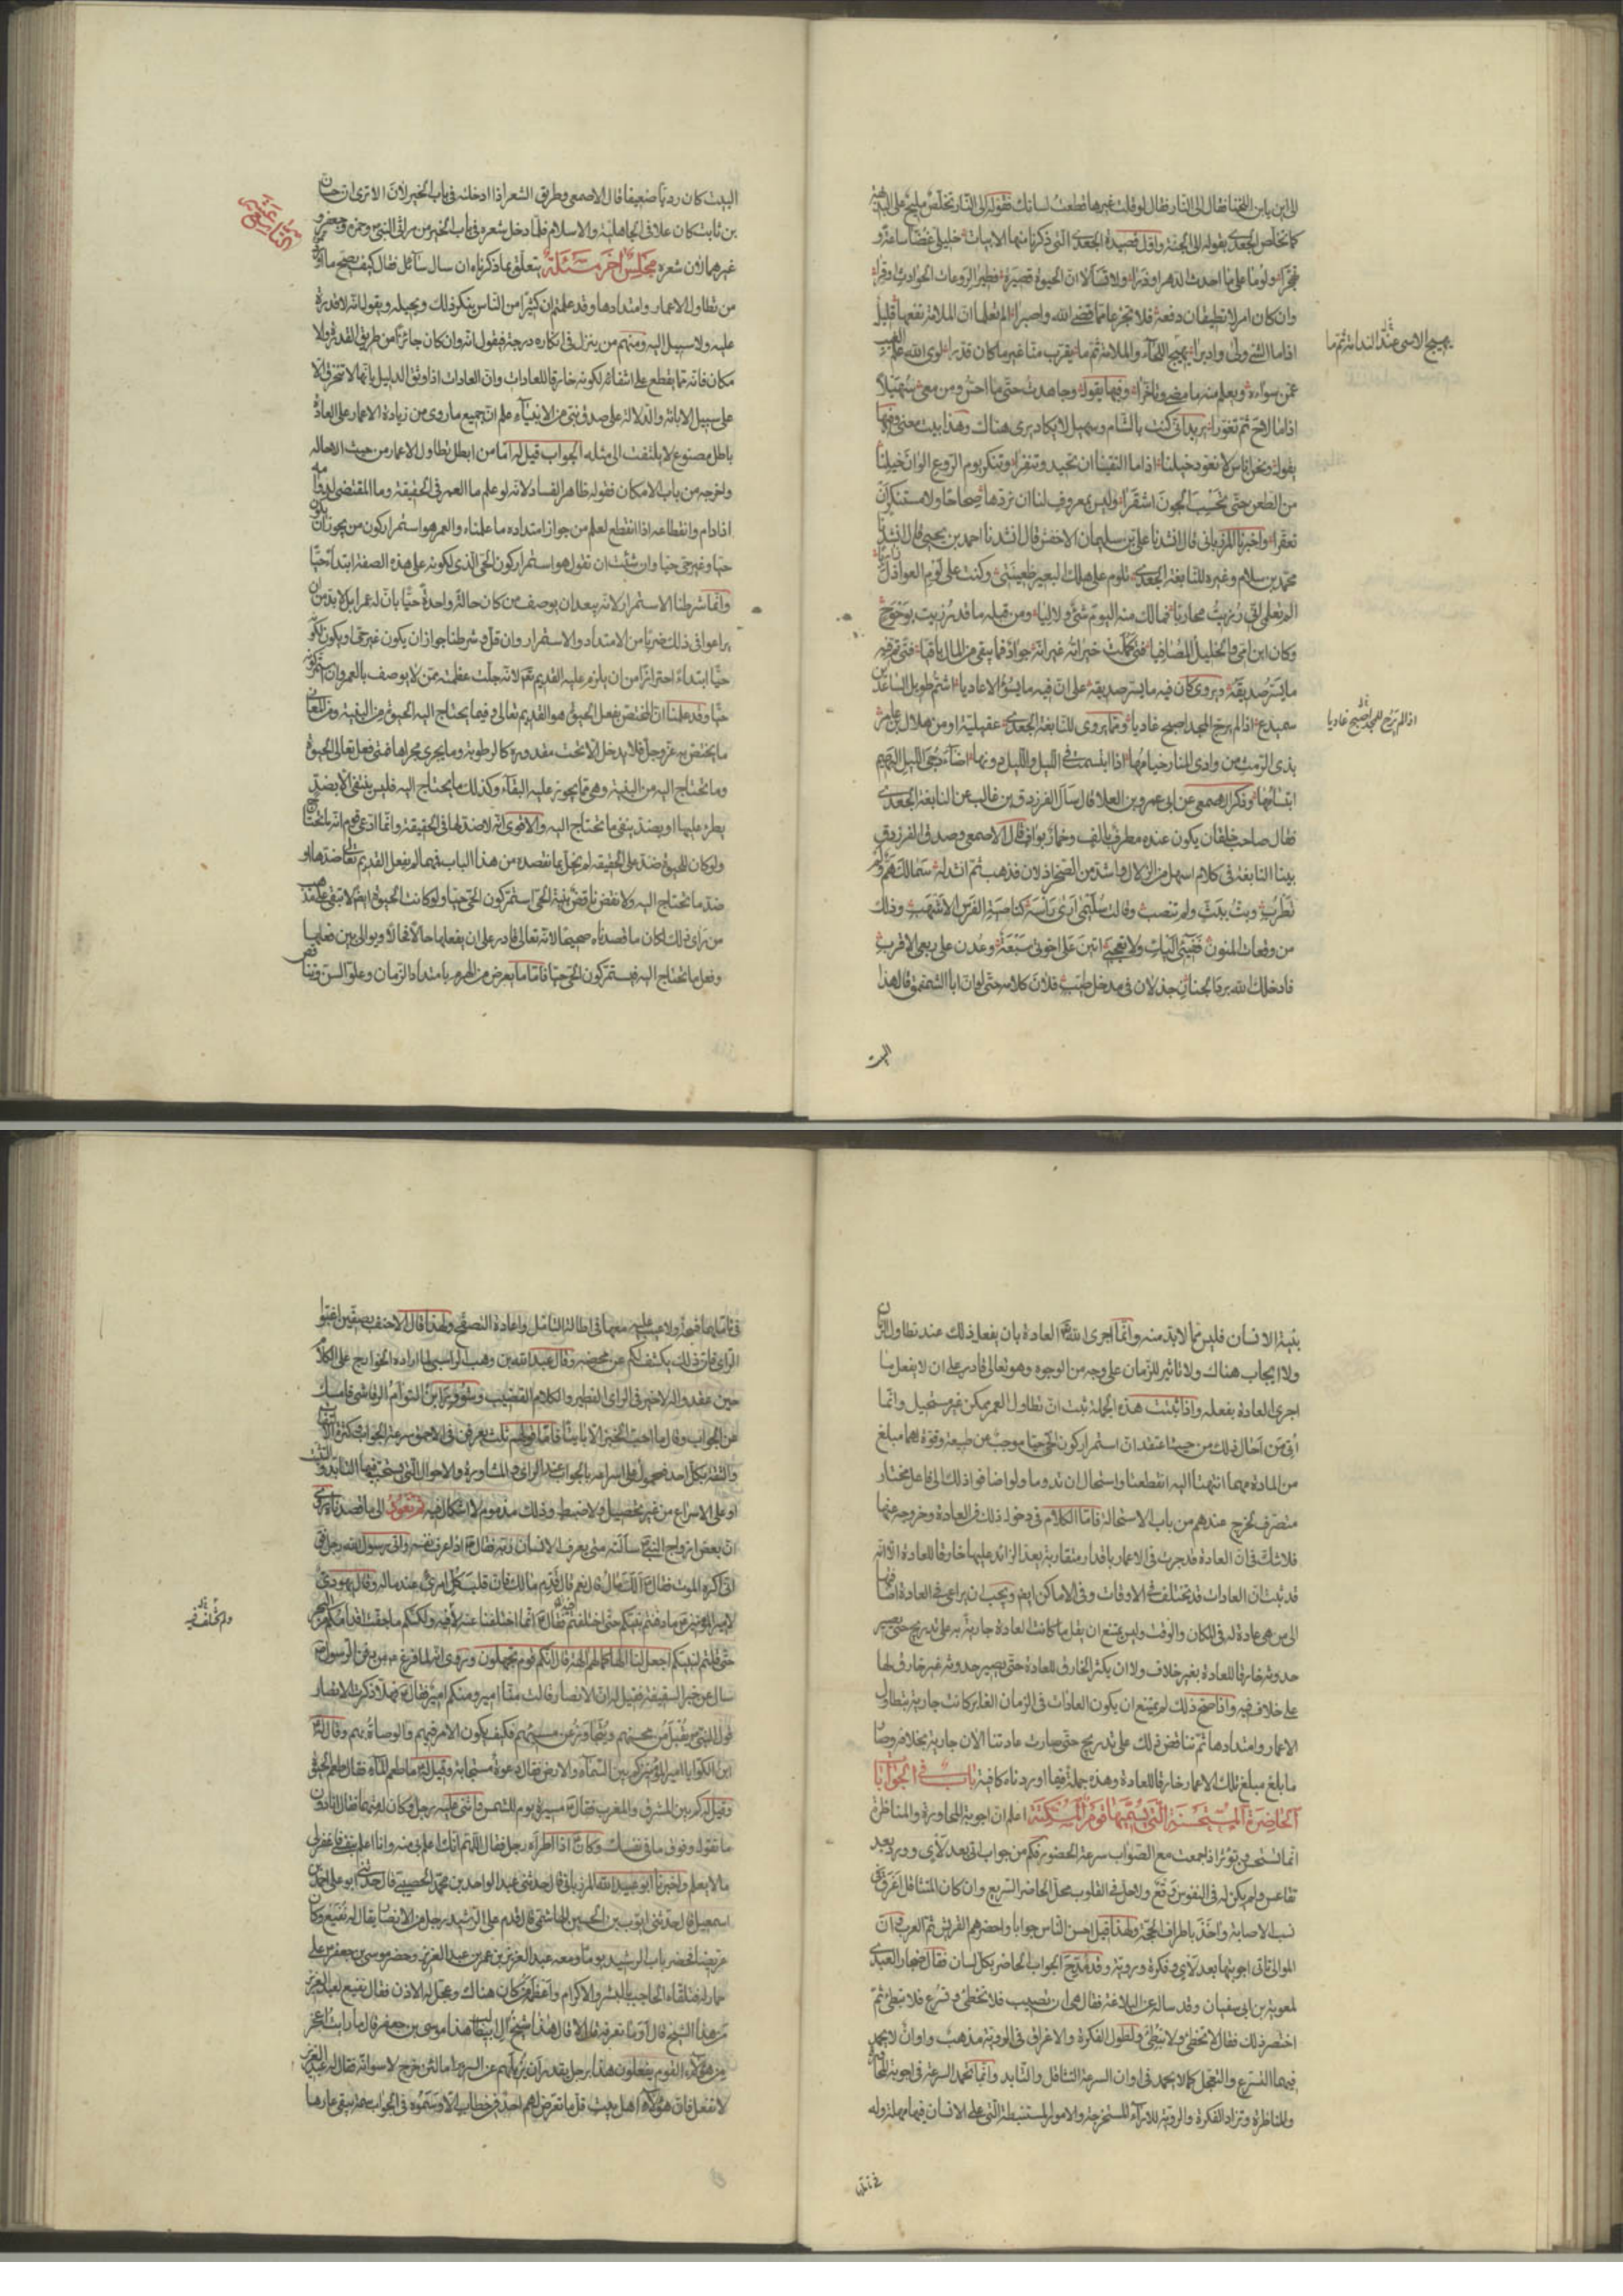 كما تخلص الجعدي بقوله الى الجنة واول قصيدة الجعدي التي ذكرنا منها الابيات خليلي غضا ساعة و
تهجرا ولوما على ما احدث الدهر او ذرا ولا تسألا ان الحيوة قصيرة فطيرا لروعات الحوادث او قرا
وان كان امر لا تطيقان دفعه فلا تجزعا مما قضى الله واصبرا الم تعلما ان الملامة نفعها قليل
اذا ما الشئ ولى وادبرا تهيج اللحاء والملامة ثم ما يقرب منا غير ما كان قدرا لوى الله علم الغيب
عمن سواءه ويعلم منه ما مضى وتاخرا وفيها يقول وجاهدت حتى ما احس ومن معى سهيلا
اذا ما لاح ثم تغورا يريد انى كنت بالشام وسهيل لا يكاد يرى هناك وهذا بيت معنى وفيها
يقول ونحن اناس لا نعود خيلنا اذا ما التقينا ان تحيد وتنفرا وتنكر يوم الروع الوان خيلنا
من الطعن حتى تحسب الجون اشقرا وليس بمعروف لنا ان نردها صحاحا ولا مستنكرا ان
تعقرا واخبرنا المرزبانى قال انشدنا على بن سليمان الاخفش قال انشدنا احمد بن يحيى قال انشدنا
محمد بن سلام وغيره للنابغة الجعدي تلوم على هلك البعير ظعينتى وكنت على لوم العواذل زاريا
الم تعلمى انى رزئت محاربا فمالك منه اليوم شئ ولا ليا ومن قبله ما قد رزيت بوحوح
وكان ابن امى والخليل المصافيا فتى كملت خيراته غير انه جواد فما يبقى من المال باقيا فتى تم فيه
ما يسر صديقه ويروى كان فيه ما يسر صديقه على ان فيه ما يسوء الاعاديا اشم طويل الساعدين
سميدع اذا لم يرح للمجد اصبح غاديا ومما يروى للنابغة الجعدي عقيلية او من هلال بن عامر
بذى الرمث من وادى المنار خيامها اذا ابتسمت فى الليل والليل دونها اضاء دجى الليل البهيم
ابتسامها وذكر الاصمعى عن ابى عمرو بن العلا قال سأل الفرزدق بن غالب عن النابغة الجعدي
فقال صاحب خلقان يكون عنده مطرف بالف وخمار بواف قال الاصمعى وصدق الفرزدق
بينا النابغة فى كلام اسهل من الزلال واشد من الصخر اذ لان فذهب ثم انشد له سمالك هم ولم
تطرب وبت ببث ولم تنصب وقالت سليمى ارى راسه كناصية الفرس الاشهب وذلك
من وقعات المنون ففيئى اليك ولا تعجبى اتين على اخوتى سبعة وعدن على ربعى الاقرب
فادخلك الله برد الجنان جذلان فى مدخل طيب فلان كلامه حتى لو ان ابا الشمقمق قال هذا
البيت
يهيج الاسى عند الندامة ثم ما
اذا لم يرح للمجد اصبح غاديا
البيت كان رديا ضعيفا قال الاصمعى وطريق الشعر اذا ادخلته فى باب الخير لان الا ترى ان حسان
بن ثابت كان علا فى الجاهلية والاسلام فلما دخل شعره فى باب الخير من مراثى النبى وحمزة وجعفر و
غيرهما لان شعره مجلس آخر مسئلة يتعلق بما ذكرناه ان سال سائل فقال كيف يصح ما
من تطاول الاعمار وامتدادها وقد علمتم ان كثيرا من الناس ينكر ذلك ويحيله ويقول انه لا قدرة
عليه ولا سبيل اليه ومنهم من ينزل فى انكاره درجة فيقول انه وان كان جائزا من طريق القدرة ولا
مكان فانه مما يقطع على انتفائه لكونه خارقا للعادات وان العادات اذا وثق الدليل بانها لا تنخرق الا
على سبيل الابانة والدلالة على صدق نبى من الانبياء علم ان جميع ما روى من زيادة الاعمار على العادة
باطل مصنوع لا يلتفت الى مثله الجواب قيل له اما من ابطل تطاول الاعمار من حيث الاحالة
واخرجه من باب الامكان فقوله ظاهر الفساد لانه لو علم ما العمر فى الحقيقة وما المقتضى لدوامه
اذا دام وانقطاعه اذا انقطع لعلم من جواز امتداده ما علمناه والعمر هو استمرار كون من يجوز ان يكون
حيا وغير حى حيا وان شئت ان تقول هو استمرار كون الحى الذى لكونه على هذه الصفة ابتداء حيا
وانما شرطنا الاستمرار لانه يبعد ان يوصف من كان حالة واحدة حيا بان له عمرا بل لا بد من ان
يراعوا فى ذلك ضربا من الامتداد والاستمرار وان قل وشرطنا جواز ان يكون غير حى او يكون لكونه
حيا ابتداء احترازا من ان يلزم عليه القديم تعالى لانه جلت عظمته ممن لا يوصف بالعمر وان استمر كونه
حيا وقد علمنا ان المختص بفعل الحيوة هو القديم تعالى وفيما يحتاج اليه الحيوة من البنية ومن المعانى
ما يختص به عز وجل فلا يدخل الا تحت مقدوره كالرطوبة وما يجرى مجراها فمتى فعل تعالى الحيوة
وما تحتاج اليه من البنية وهى مما يجوز عليه البقاء وكذلك ما يحتاج اليه فليس ينتفى الا بضد
يطرء عليها او بضد ينفى ما تحتاج اليه والاقوى انه لا ضد لها فى الحقيقة وانما ادعى قوم انه ما تحتاج
ولو كان للحيوة ضد على الحقيقة لم يخل بما نقصده من هذا الباب فمهما لم يفعل القديم تعالى ضدها او
ضد ما تحتاج اليه ولا نقض ناقض بنية الحى استمر كون الحى حيا ولو كانت الحيوة ايضا لا تبقى على مذهب
من راى ذلك لكان ما قصدناه صحيحا لانه تعالى قادر على ان يفعلها حالا فحالا ويوالى بين فعلها
وفعل ما تحتاج اليه فيستمر كون الحى حيا فاما ما يعرض من الهرم بامتداد الزمان وعلو السن وتناقض
بنية الانسان فليس مما لا بد منه وانما اجرى الله العادة بان يفعل ذلك عند تطاول الزمان
ولا ايجاب هناك ولا تاثير للزمان على وجه من الوجوه وهو تعالى قادر على ان لا يفعل ما
اجرى العادة بفعله واذا ثبتت هذه الجملة ثبت ان تطاول العمر ممكن غير مستحيل وانما
اتى من احال ذلك من حيث اعتقد ان استمرار كون الحى حيا موجب عن طبيعة وقوة لهما مبلغ
من المادة مهما انتهتا اليه انقطعتا واستحال ان تدوما ولو اضافوا ذلك الى فاعل مختار
متصرف لخرج عندهم من باب الاستحالة فاما الكلام فى دخول ذلك فى العادة وخروجه عنها
فلا شك فى ان العادة قد جرت فى الاعمار باقدار متقاربة يعد الزائد عليها خارقا للعادة الا انه
قد ثبت ان العادات قد تختلف فى الاوقات وفى الاماكن ايضا ويجب ان يراعى فى العادة اضافتها
الى من هى عادة له فى المكان والوقت وليس يمتنع ان يقل ما كانت العادة جارية به على تدريج حتى يصير
حدوثه خارقا للعادة بغير خلاف ولا ان يكثر الخارق للعادة حتى يصير حدوثه غير خارق لها
على خلاف فيه واذا صح ذلك لم يمتنع ان يكون العادات فى الزمان الغابر كانت جارية بتطاول
الاعمار وامتدادها ثم تناقص ذلك على تدريج حتى صارت عادتنا الان جارية بخلافه وصار
ما بلغ مبلغ تلك الاعمار خارقا للعادة وهذه جملة فيما اوردناه كافية باب فى الجوابات
الحاضرة المستحسنة التى يسميها قوم المسكتة اعلم ان اجوبة المحاورة والمناظرة
انما تستحسن وتؤثر اذا جمعت مع الصواب سرعة الحضور فكم من جواب اتى بعد لأى وورد بعد
تقاعس ولم يكن له فى النفوس وقع ولا حل فى القلوب محل الحاضر السريع وان كان المتثاقل اعرق فى
نسب الاصابة وآخذ باطراف الحجة ولهذا قيل احسن الناس جوابا واحضرهم القريش ثم العرب وان
الموالى تاتى اجوبتها بعد لأى وفكرة وروية وقد مدح الجواب الحاضر بكل لسان فقال صحار العبدى
لمعوية بن ابى سفيان وقد ساله عن البلاغة فقال هى ان تصيب فلا تخطئ وتسرع فلا تبطئ ثم
اختصر ذلك فقال لا تخطئ ولا تبطئ ولطول الفكرة والاغراق فى الروية مذهب واوان لا يحمد
فيهما التسرع والتعجل كما لا يحمد فى اوان السرعة التثاقل والتايد وانما تحمد السرعة فى اجوبة المحاورة
والمناظرة وتراد الفكرة والروية للآراء المستخرجة والامور المستنبطة التى على الانسان فيها مهلة وله
فى تاملها فسحة ولا عيب عليه معها فى اطالة التامل واعادة التصفح ولهذا قال الاحنف بصفين اغبوا
الراى فان ذلك يكشف لكم عن محضه وقال عبد الله بن وهب الراسبى لما اراده الخوارج على الكلام
حين عقدوا له لا خير فى الراى الفطير والكلام القضيب وشوور ابن التوأم الرقاشى فامسك
عن الجواب وقال ما احب الخبز الا بايتا فاما قولهم ثلث يعرفن فى الاحمق سرعة الجواب وكثرة الالتفات
والثقة بكل احد فمحمول على اسراعه بالجواب عند الراى والمشاورة والاحوال التى يستحب فيها التايد والتثبت
او على الاسراع من غير تحصيل ولا ضبط وذلك مذموم لا اشكال فيه ثم نعود الى ما قصدناه روى
ان بعض ازواج النبى سالته متى يعرف الانسان ربه فقال اذا عرف نفسه واتى رسول الله رجل فقال
انى اكره الموت فقال الك مال قال نعم قال قدم مالك فان قلب كل امرئ عند ماله وقال يهودى
لامير المؤمنين ما دفنتم نبيكم حتى اختلفتم فقال انما اختلفنا عنه لا فيه ولكنكم ما جفت اقدامكم من البحر
حتى قلتم لنبيكم اجعل لنا الها كما لهم الهة قال انكم قوم تجهلون وروى انه لما فرغ من دفن الرسول
سال عن خبر السقيفة فقيل له ان الانصار قالت منا امير ومنكم امير فقال فهلا ذكرت الانصار
قول النبى نقبل من محسنهم ونتجاوز عن مسيئهم فكيف يكون الامر فيهم والوصاة بهم وقال له
ابن الكوا يا امير المؤمنين كم بين السماء والارض فقال دعوة مستجابة وقيل له ما طعم الماء فقال طعم الحيوة
وقيل له كم بين المشرق والمغرب فقال مسيرة يوم للشمس واثنى عليه رجل وكان له متهما فقال انا دون
ما تقول وفوق ما فى نفسك وكان اذا اطراه رجل فقال اللهم انك اعلم بى منه وانا اعلم بنفسى فاغفر لى
ما لا يعلم واخبرنا ابو عبيد الله المرزبانى قال حدثنى عبد الواحد بن محمد الحصينى قال حدثنى ابو على احمد بن
اسمعيل قال حدثنى ايوب بن الحسين الهاشمى قال قدم على الرشيد رجل من الانصار يقال له نفيع وكان
عريضا فحضر باب الرشيد يوما ومعه عبد العزيز بن عمر بن عبد العزيز وحضر موسى بن جعفر على
حمار له فتلقاه الحاجب بالبشر والاكرام واعظمه من كان هناك وعجل له الاذن فقال نفيع لعبد العزيز
من هذا الشيخ قال او ما تعرفه قال لا قال هذا شيخ ال ابى طالب هذا موسى بن جعفر قال ما رايت اعجز
من هؤلاء القوم يفعلون هذا برجل يقدر ان يزيلهم عن السرير اما لئن خرج لاسوانه فقال له عبد العزيز
لا تفعل فان هؤلاء اهل بيت قل ما تعرض لهم احد فى خطاب الا وسموه فى الجواب سمة يبقى عارها